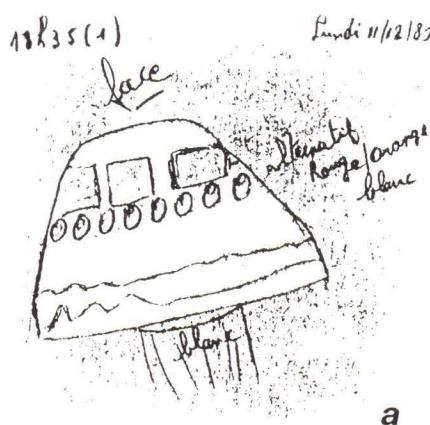 18h35(1)
Lundi 11/12/89
face
alternatif
Rouge/orange
blanc
blanc
a